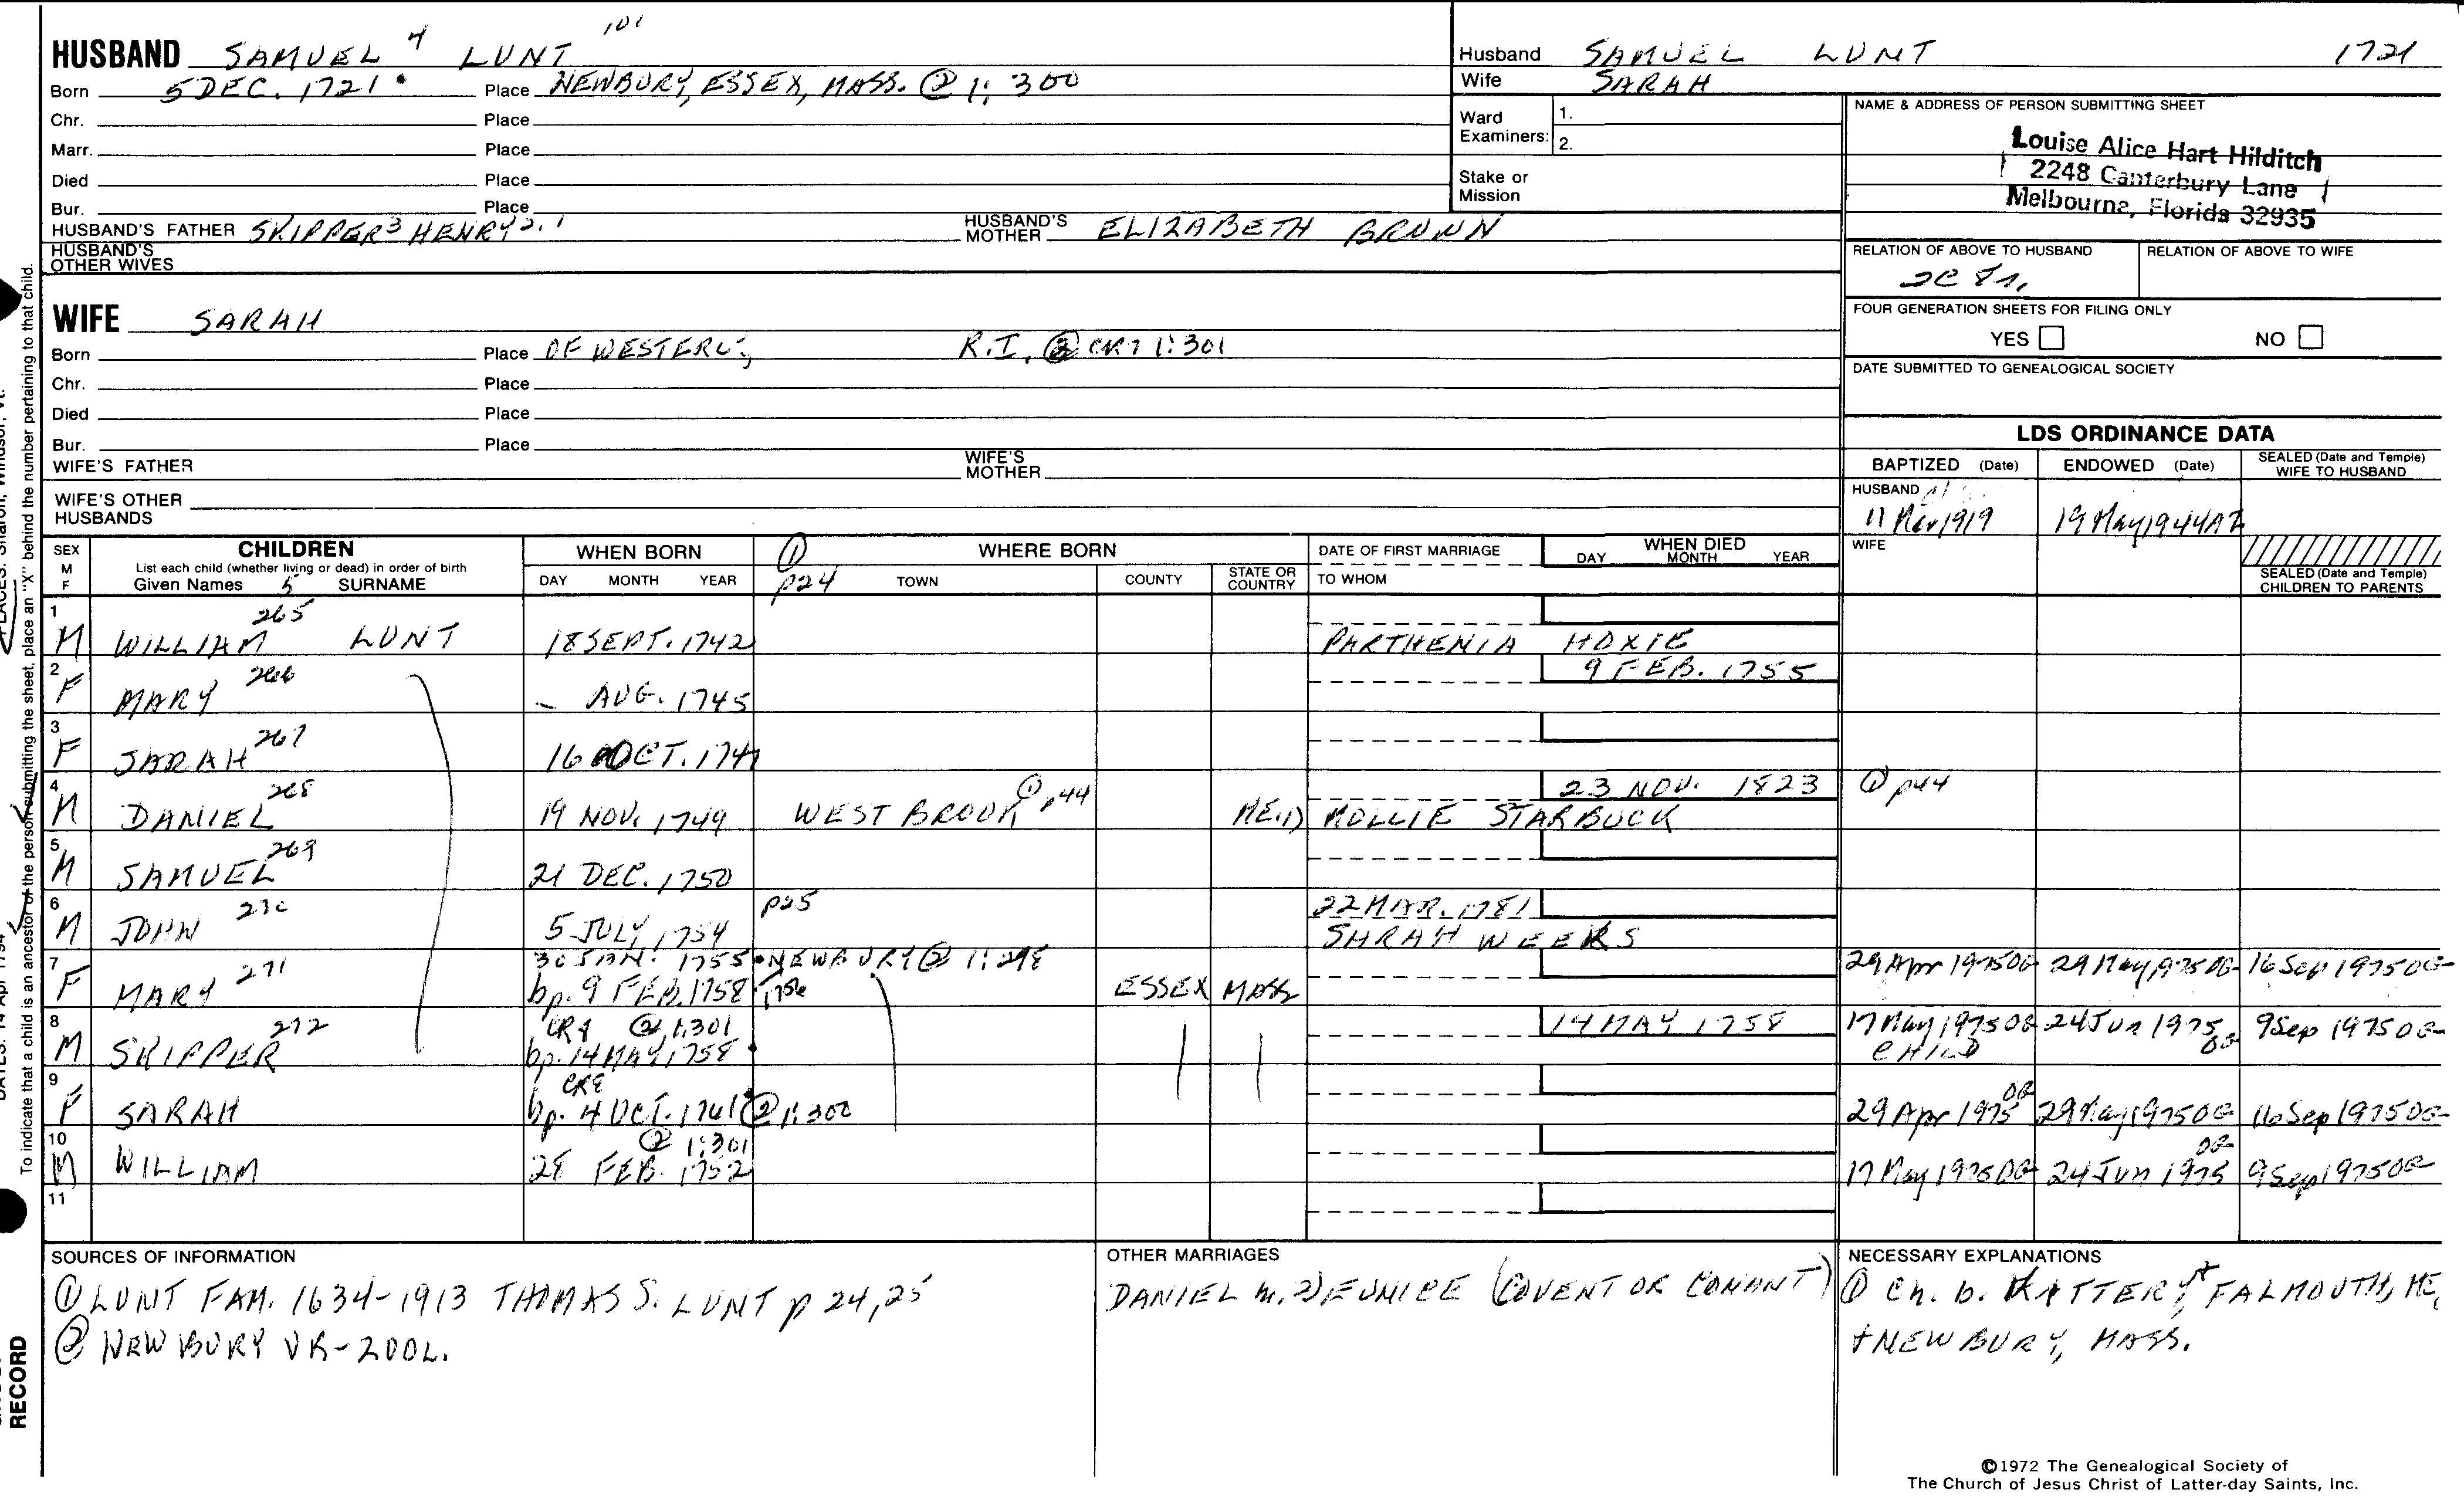 HUSBAND SAMUEL 4 LUNT 101
Born 5 DEC. 1721 Place NEWBURY, ESSEX, MASS. @ 1: 300
Chr. Place
Marr. Place
Died Place
Bur. Place
HUSBAND'S FATHER SKIPPER 3 HENRY 2, 1 HUSBAND'S MOTHER ELIZABETH BROWN
HUSBAND'S OTHER WIVES
WIFE SARAH
Born Place OF WESTERLY, R.I. 1:301
Chr. Place
Died Place
Bur. Place
WIFE'S FATHER WIFE'S MOTHER
WIFE'S OTHER HUSBANDS
Husband SAMUEL LUNT 1721
Wife SARAH
Ward Examiners: 1.
2.
Stake or Mission
NAME & ADDRESS OF PERSON SUBMITTING SHEET
Louise Alice Hart Hilditch
2248 Canterbury Lane
Melbourne, Florida 32935
RELATION OF ABOVE TO HUSBAND RELATION OF ABOVE TO WIFE
FOUR GENERATION SHEETS FOR FILING ONLY
YES NO
DATE SUBMITTED TO GENEALOGICAL SOCIETY
LDS ORDINANCE DATA
BAPTIZED (Date) ENDOWED (Date) SEALED (Date and Temple) WIFE TO HUSBAND
HUSBAND
1919 19 May 1944 AZ
WIFE
SEALED (Date and Temple) CHILDREN TO PARENTS
SEX M F CHILDREN WHEN BORN ① WHERE BORN DATE OF FIRST MARRIAGE WHEN DIED
List each child (whether living or dead) in order of birth
Given Names 5 SURNAME DAY MONTH YEAR p24 TOWN COUNTY STATE OR COUNTRY TO WHOM DAY MONTH YEAR
1 M WILLIAM 265 LUNT 18 SEPT. 1742 PARTHENIA HOXIE
2 F MARY 266 – AUG. 1745 9 FEB. 1755
3 F SARAH 267 16 OCT. 174
4 M DANIEL 268 19 NOV. 1749 WEST BROOK ① p44 ME. 1) MOLLIE STARBUCK 23 NOV. 1823 ① p44
5 M SAMUEL 269 21 DEC. 1750
6 M JOHN 270 5 JULY, 1754 p25 22 MAR. 1781 SARAH WEEKS
7 F MARY 271 30 JAN. 1755 NEWBURY ② 1: 298
bp. 9 FEB. 1758 1756 ESSEX MASS 29 Apr 1975 OG 29 May 1975 OG 16 Sep 1975 OG
8 M SKIPPER 272 ② 1:301
bp. 14 MAY, 1758 14 MAY 1758 17 May 1975 OG CHILD 24 Jun 1975 OG 9 Sep 1975 OG
9 F SARAH CR8
bp. 4 OCT. 1761 ② 1:300 29 Apr 1975 OG 29 May 1975 OG 16 Sep 1975 OG
10 M WILLIAM ② 1:301
28 FEB. 1752 17 May 1975 OG 24 Jun 1975 OG 9 Sep 1975 OG
11
SOURCES OF INFORMATION
① LUNT FAM. 1634-1913 THOMAS S. LUNT p 24, 25
② NEWBURY VR-
OTHER MARRIAGES
DANIEL m. 2) EUNICE (COVENT OR CONANT)
NECESSARY EXPLANATIONS
① Ch. b. KITTERY, FALMOUTH, ME,
+ NEWBURY, MASS.
©1972 The Genealogical Society of
The Church of Jesus Christ of Latter-day Saints, Inc.
To indicate that a child is an ancestor of the person submitting the sheet, place an "X" behind the number pertaining to that child.
RECORD